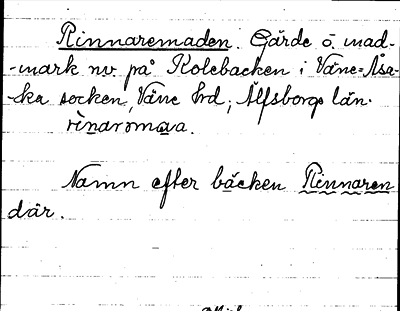 Rinnaremaden. Gärde o. mad-
-mark nv på Kolebacken i Väne-Åsa-
-ka socken, Väne hd, Älfsborgs län.
rinarəmava.
Namn efter bäcken Rinnaren
där.